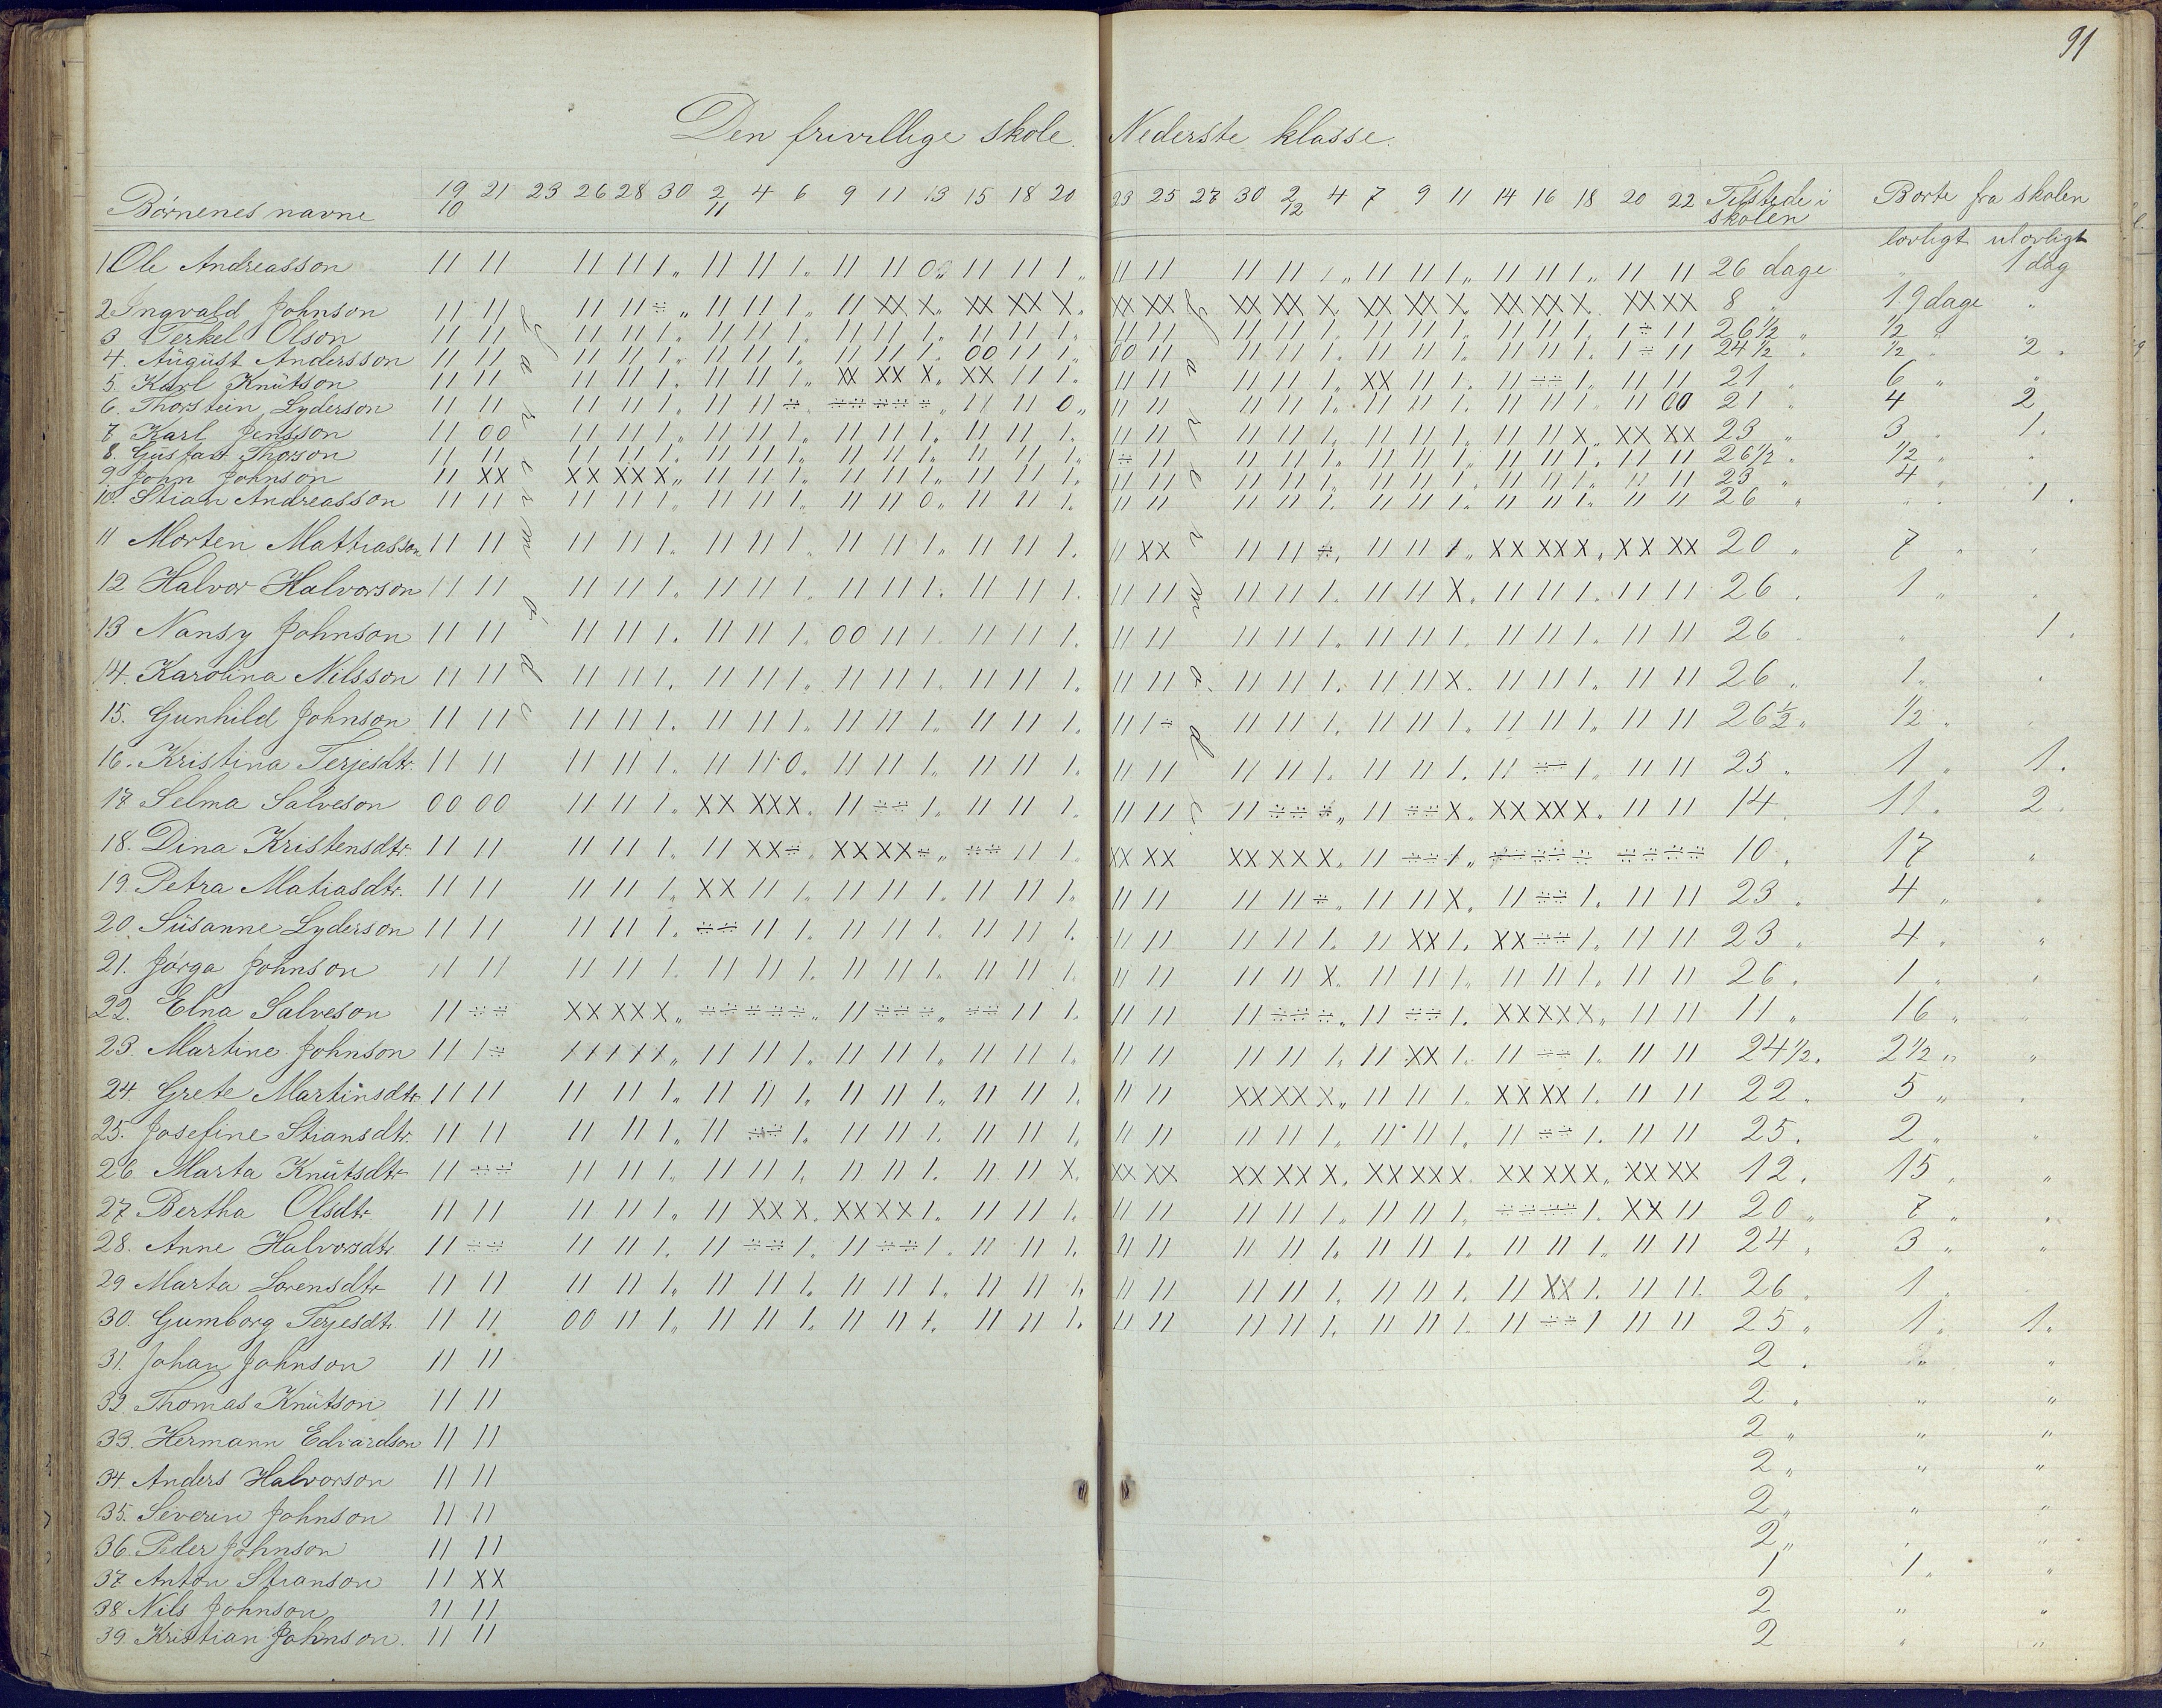 91
Den frivillige skole. Nederste klasse.
Børnenes navne 19/10 21 23 26 28 30 2/11 4 6 9 11 13 15 18 20 23 25 27 30 2/12 4 7 9 11 14 16 18 20 22 Tilstede i skolen Borte fra skolen
lovligt ulovligt
1 Ole Andreasson 11 11 11 11 1 „ 11 11 1 „ 11 11 0 „ 11 11 1 „ 11 11 11 11 1 „ 11 11 1 „ 11 11 1 „ 11 11 26 dage „ 1 dag
2 Ingvald Johnson 11 11 11 11 ÷ „ 11 11 1 „ 11 XX X „ XX XX X „ XX XX XX XX X „ XX XX X „ XX XX X „ XX XX 8 „ 19 dage „
3 Terkel Olson 11 11 11 11 1 „ 11 11 1 „ 11 11 1 „ 11 11 1 „ 11 11 11 11 1 „ 11 11 1 „ 11 11 1 „ 1 ÷ 11 26 1/2 „ 1/2 „ „
4. August Andersson 11 11 11 11 1 „ 11 11 1 „ 11 11 1 „ 00 11 1 „ 00 11 11 11 1 „ 11 11 1 „ 11 11 1 „ 1 ÷ 11 24 1/2 „ 1/2 „ 2 „
5. Karl Knutson 11 11 11 11 1 „ 11 11 1 „ XX XX X „ XX 11 1 „ 11 11 11 11 1 „ XX 11 1 „ 11 ÷÷ 1 „ 11 11 21 „ 6 „ „
6. Thorstein Lyderson 11 11 11 11 1 „ 11 11 ÷ „ ÷÷ ÷÷ ÷ „ 11 11 0 „ 11 11 11 11 1 „ 11 11 1 „ 11 11 1 „ 11 00 21 „ 4 2
7. Karl Jensson 11 00 11 11 1 „ 11 11 1 „ 11 11 1 „ 11 11 1 „ 11 11 11 11 1 „ 11 11 1 „ 11 11 X „ XX XX 23 „ 3 „ 1 „
8. Gustav Thorson 11 11 11 11 1 „ 11 11 1 „ 11 11 1 „ 11 11 1 „ 1÷ 11 11 11 1 „ 11 11 1 „ 11 11 1 „ 11 11 26 1/2 „ 1/2 „ „
9. John Johnson 11 XX XX XX X „ 11 11 1 „ 11 11 1 „ 11 11 1 „ 11 11 11 11 1 „ 11 11 1 „ 11 11 1 „ 11 11 23 „ 4 „ „
10. Stian Andreasson 11 11 11 11 1 „ 11 11 1 „ 11 11 0 „ 11 11 1 „ 11 11 11 11 1 „ 11 11 1 „ 11 11 1 „ 11 11 26 „ „ 1 „
11 Morten Mattiasson 11 11 11 11 1 „ 11 11 1 „ 11 11 1 „ 11 11 1 „ 11 XX 11 11 ÷ „ 11 11 1 „ XX XX X „ XX XX 20 „ 7 „ „
12 Halvor Halvorson 11 11 11 11 1 „ 11 11 1 „ 11 11 1 „ 11 11 1 „ 11 11 11 11 1 „ 11 11 X „ 11 11 1 „ 11 11 26 „ 1 „ „
13 Nansy Johnson 11 11 11 11 1 „ 11 11 1 „ 00 11 1 „ 11 11 1 „ 11 11 11 11 1 „ 11 11 1 „ 11 11 1 „ 11 11 26 „ „ 1 „
14. Karolina Nilsson 11 11 11 11 1 „ 11 11 1 „ 11 11 1 „ 11 11 1 „ 11 11 11 11 1 „ 11 11 X „ 11 11 1 „ 11 11 26 „ 1 „ „
15. Gunhild Johnson 11 11 11 11 1 „ 11 11 1 „ 11 11 1 „ 11 11 1 „ 11 1÷ 11 11 1 „ 11 11 1 „ 11 11 1 „ 11 11 26 1/2 „ 1/2 „ „
16. Kristina Terjesdtr. 11 11 11 11 1 „ 11 11 0 „ 11 11 1 „ 11 11 1 „ 11 11 11 11 1 „ 11 11 1 „ 11 ÷÷ 1 „ 11 11 25 „ 1 „ 1 „
17 Selma Salveson 00 00 11 11 1 „ XX XX X „ 11 ÷÷ 1 „ 11 11 1 „ 11 11 11 ÷÷ ÷ „ 11 ÷÷ X „ XX XX X „ 11 11 14 „ 11 „ 2 „
18. Dina Kristensdtr 11 11 11 11 1 „ 11 XX ÷ „ XX XX ÷ „ ÷÷ 11 1 „ XX XX XX XX X „ 11 ÷÷ 1 „ ÷÷ ÷÷ ÷ ÷÷ ÷÷ 10 „ 17 „
19. Petra Matiasdtr. 11 11 11 11 1 „ XX 11 1 „ 11 11 1 „ 11 11 1 „ 11 11 11 11 ÷ „ 11 11 X „ 11 ÷÷ 1 „ 11 11 23 „ 4 „ „
20. Susanne Lyderson 11 11 11 11 1 „ ÷÷ 11 1 „ 11 11 1 „ 11 11 1 „ 11 11 11 11 1 „ 11 XX 1 „ XX ÷÷ 1 „ 11 11 23 „ 4 „ „
21. Jørga Johnson 11 11 11 11 1 „ 11 11 1 „ 11 11 1 „ 11 11 1 „ 11 11 11 11 X „ 11 11 1 „ 11 11 1 „ 11 11 26 „ 1 „ „
22. Elna Salveson 11 ÷÷ XX XX X „ ÷÷ ÷÷ ÷ „ 11 ÷÷ ÷ „ ÷÷ 11 1 „ 11 11 11 ÷÷ ÷ „ 11 ÷÷ 1 „ XX XX X „ 11 11 11 „ 16 „ „
23. Martine Johnson 11 1÷ 11 XX X „ 11 11 1 „ 11 11 1 „ 11 11 1 „ 11 11 11 11 1 „ 11 XX 1 „ 11 ÷÷ 1 „ 11 11 24 1/2 „ 2 1/2 „ „
24. Grete Martinsdtr 11 11 11 11 1 „ 11 11 1 „ 11 11 1 „ 11 11 1 „ 11 11 XX XX X „ 11 11 1 „ XX XX 1 „ 11 11 22 „ 5 „ „
25. Josefine Stiansdtr. 11 11 11 11 1 „ 11 ÷÷ 1 „ 11 11 1 „ 11 11 1 „ 11 11 11 11 1 „ 11 11 1 „ 11 ÷÷ 1 „ 11 11 25 „ 2 „ „
26. Marta Knutsdtr 11 ÷÷ 11 11 1 „ 11 11 1 „ 11 11 1 „ 11 11 X „ XX XX XX XX X „ XX XX X „ XX XX X „ XX XX 12 „ 15 „ „
27 Bertha Olsdtr. 11 11 11 11 1 „ 11 XX X „ XX XX 1 „ 11 11 1 „ 11 11 11 11 1 „ 11 11 1 „ ÷÷ ÷÷ 1 „ XX 11 20 „ 7 „ „
28. Anne Halvorsdtr 11 ÷÷ 11 11 1 „ 11 ÷÷ 1 „ 11 ÷÷ 1 „ 11 11 1 „ 11 11 11 11 1 „ 11 11 1 „ 11 11 1 „ 11 11 24 „ 3 „ „
29 Marta Lorensdtr 11 11 11 11 1 „ 11 11 1 „ 11 11 1 „ 11 11 1 „ 11 11 11 11 1 „ 11 11 1 „ 11 XX 1 „ 11 11 26 „ 1 „
30. Gumborg Terjesdtr. 11 11 00 11 1 „ 11 11 1 „ 11 11 1 „ 11 11 1 „ 11 11 11 11 1 „ 11 11 1 „ 11 ÷÷ 1 11 11 25 „ 1 „ 1 „
31. Johan Johnson 11 11 2 „ „ „
32. Thomas Knutson 11 11 2 „ „ „
33. Hermann Edvardson 11 11 2 „ „ „
34 Anders Halvorson 11 11 2 „ „ „
35. Severin Johnson 11 11 2 „ „ „
36. Peder Johnson 11 11 2 „ „ „
37 Anton Stianson 11 XX 1 1 „ „
38 Nils Johnson 11 11 2 „ „
39. Kristian Johnson. 11 11 2 „ „
Lærermøde
Lærermøde.